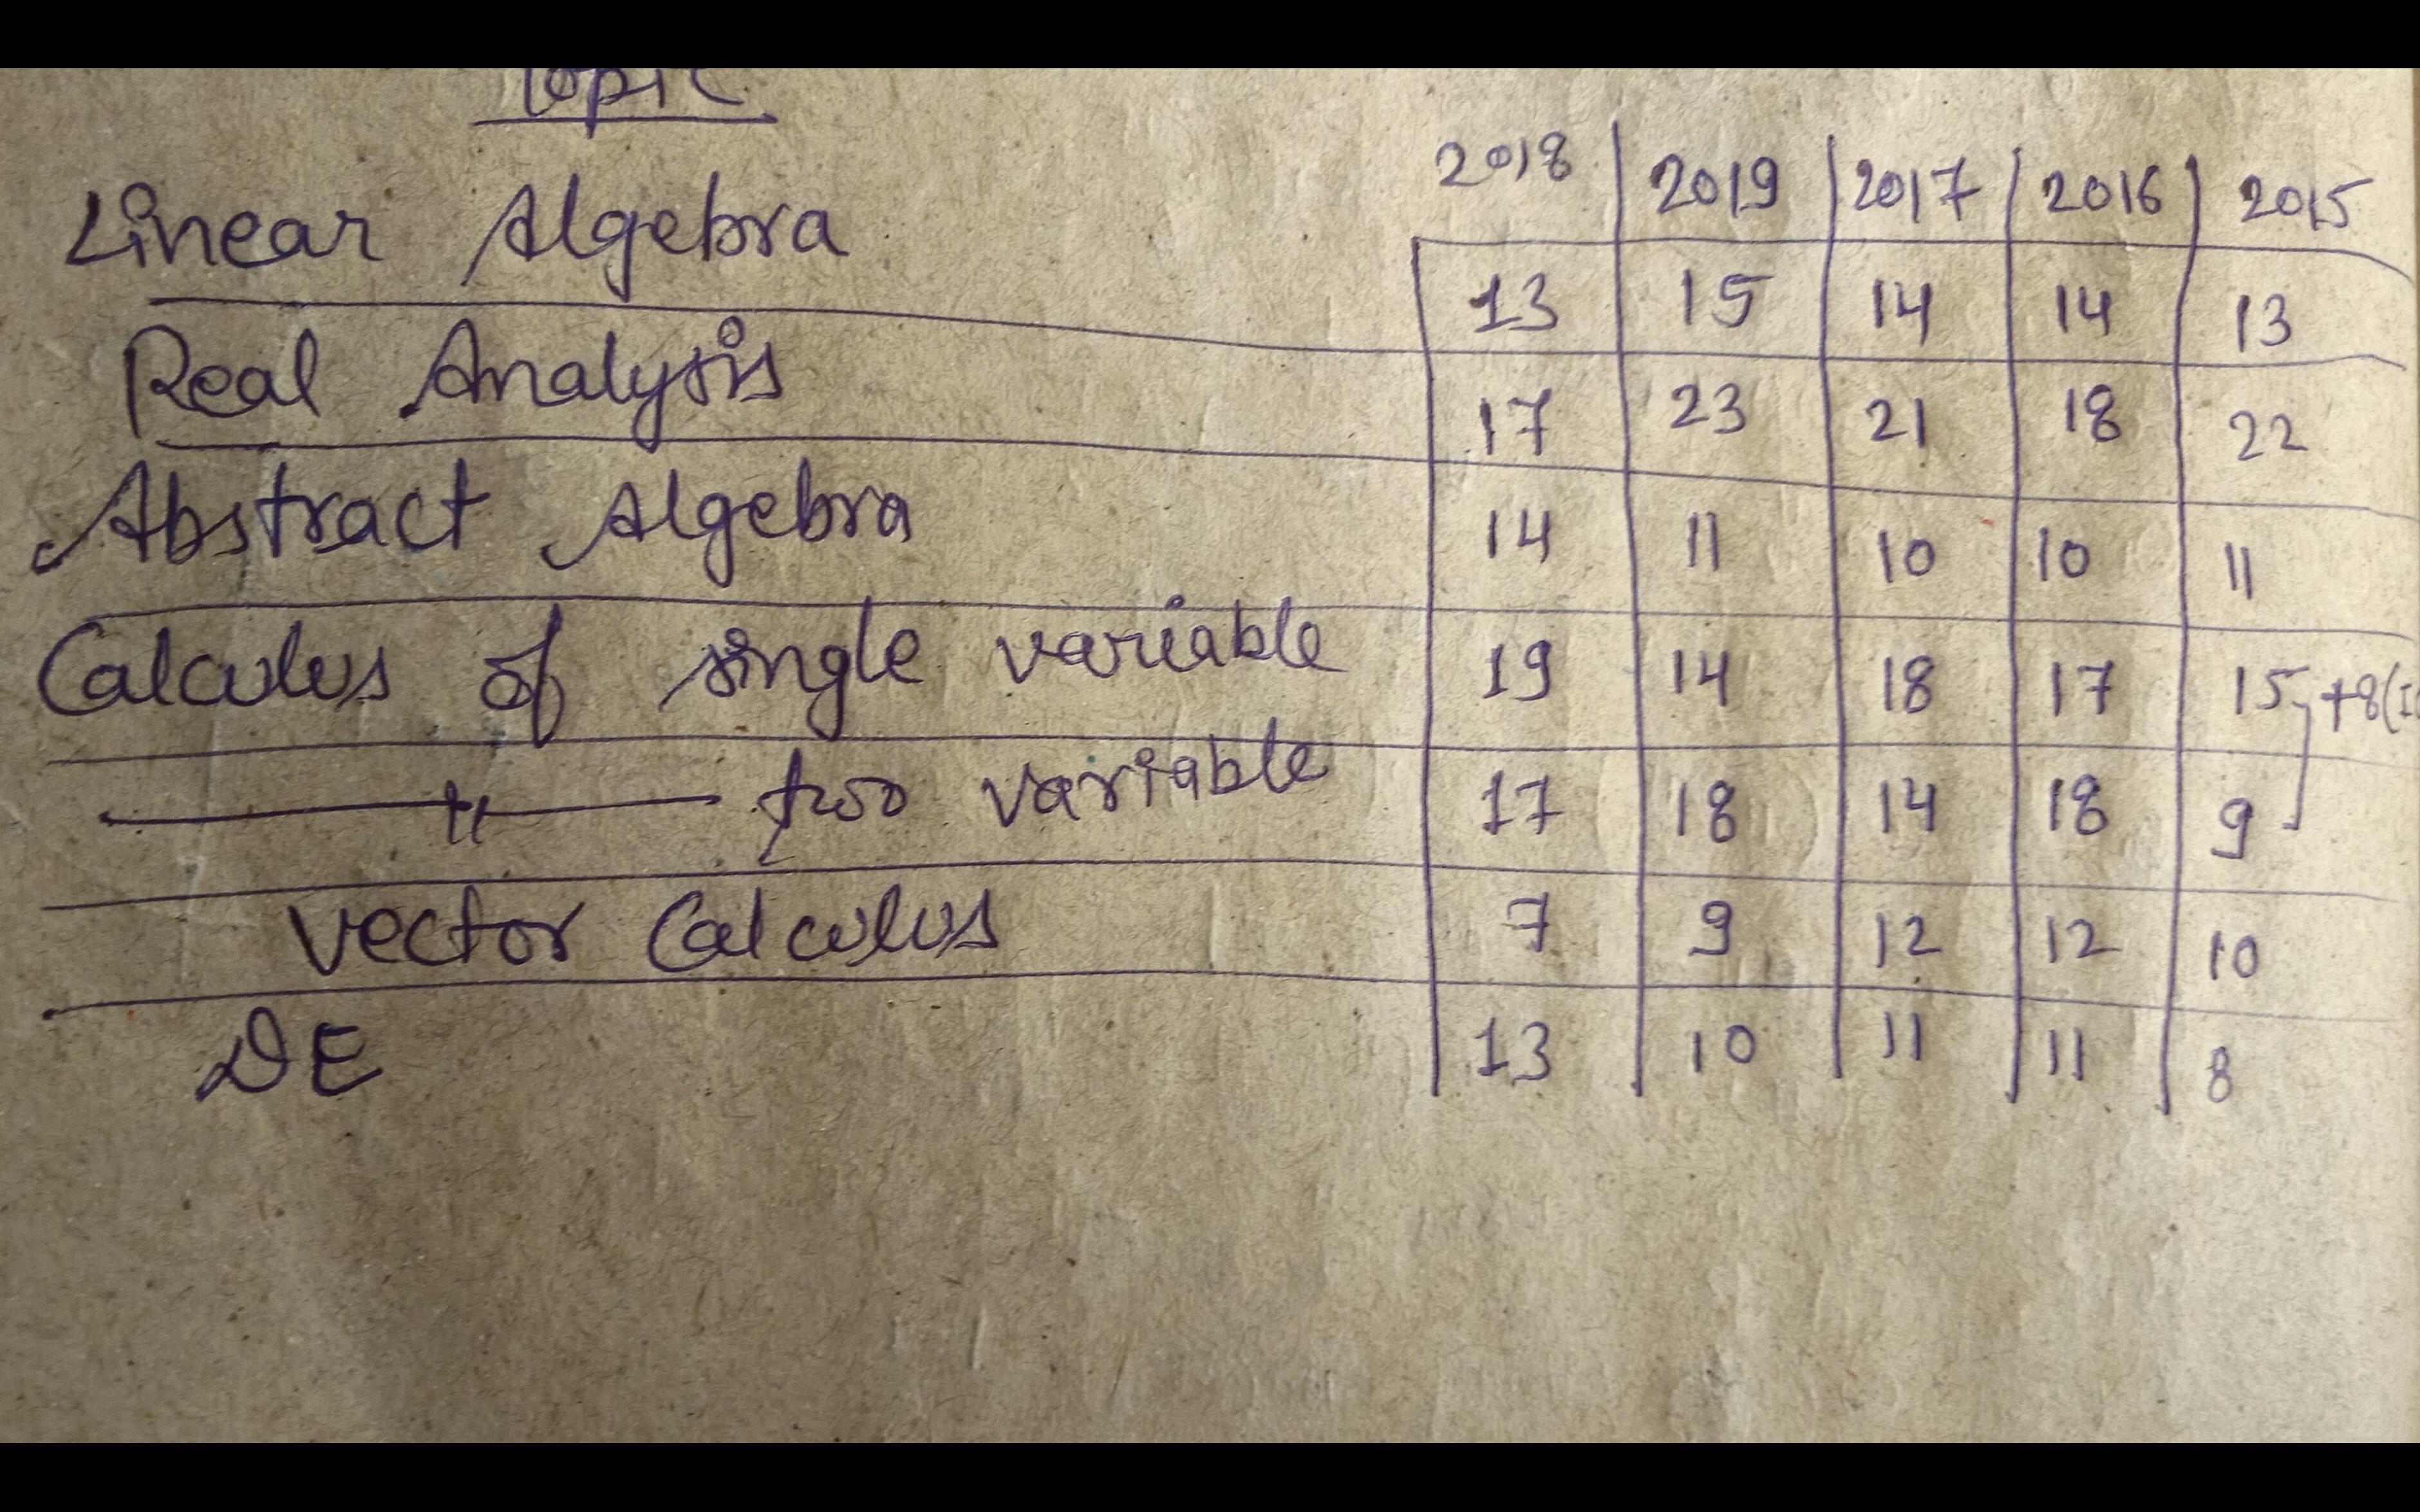 Topic
2018 2019 2017 2016 2015
Linear Algebra 13 15 14 14 13
Real Analysis 17 23 21 18 22
Abstract Algebra 14 11 10 10 11
Calculus of single variable 19 14 18 17 15 +8(
—— " —— two variable 17 18 14 18 9
Vector Calculus 7 9 12 12 10
DE 13 10 11 11 8